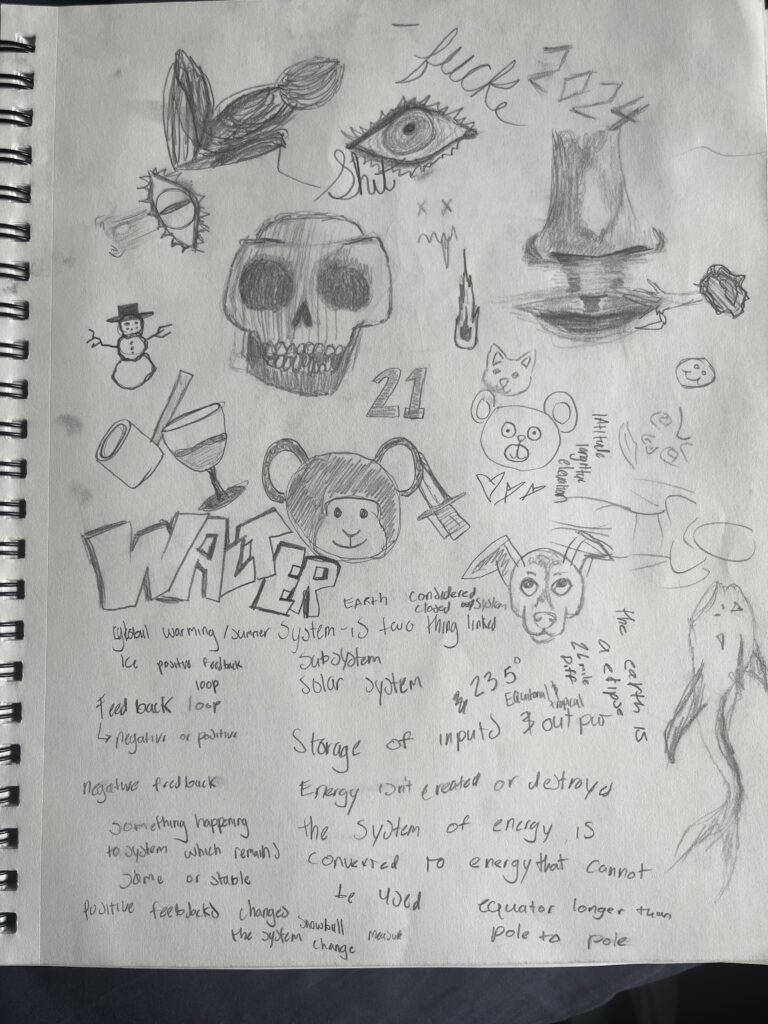 fucke 2024
Shit
21
latitude
longitu
elevation
WALTER
EARTH considered
closed system
global warming/summer System - is two thing linked
Ice positive feedback
loop
Subsystem
Solar System
23.5°
Equatorial & tropical
21 mile
Diff
the earth is
a elipse
Feed back loop
↳ negative or positive
Storage of inputs & output
negative feedback
Energy isn't created or destroyed
something happening
to system which remains
same or stable
the system of energy is
converted to energy that cannot
be used
positive feedbacks changes
the system
snowball
change
equator longer than
pole to pole